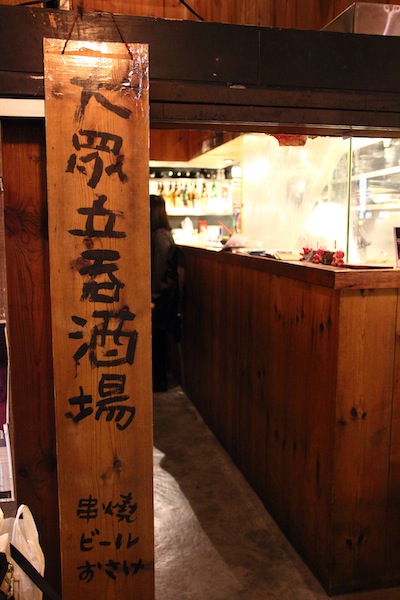 大眾立呑酒場
串燒
ビール
おさけ